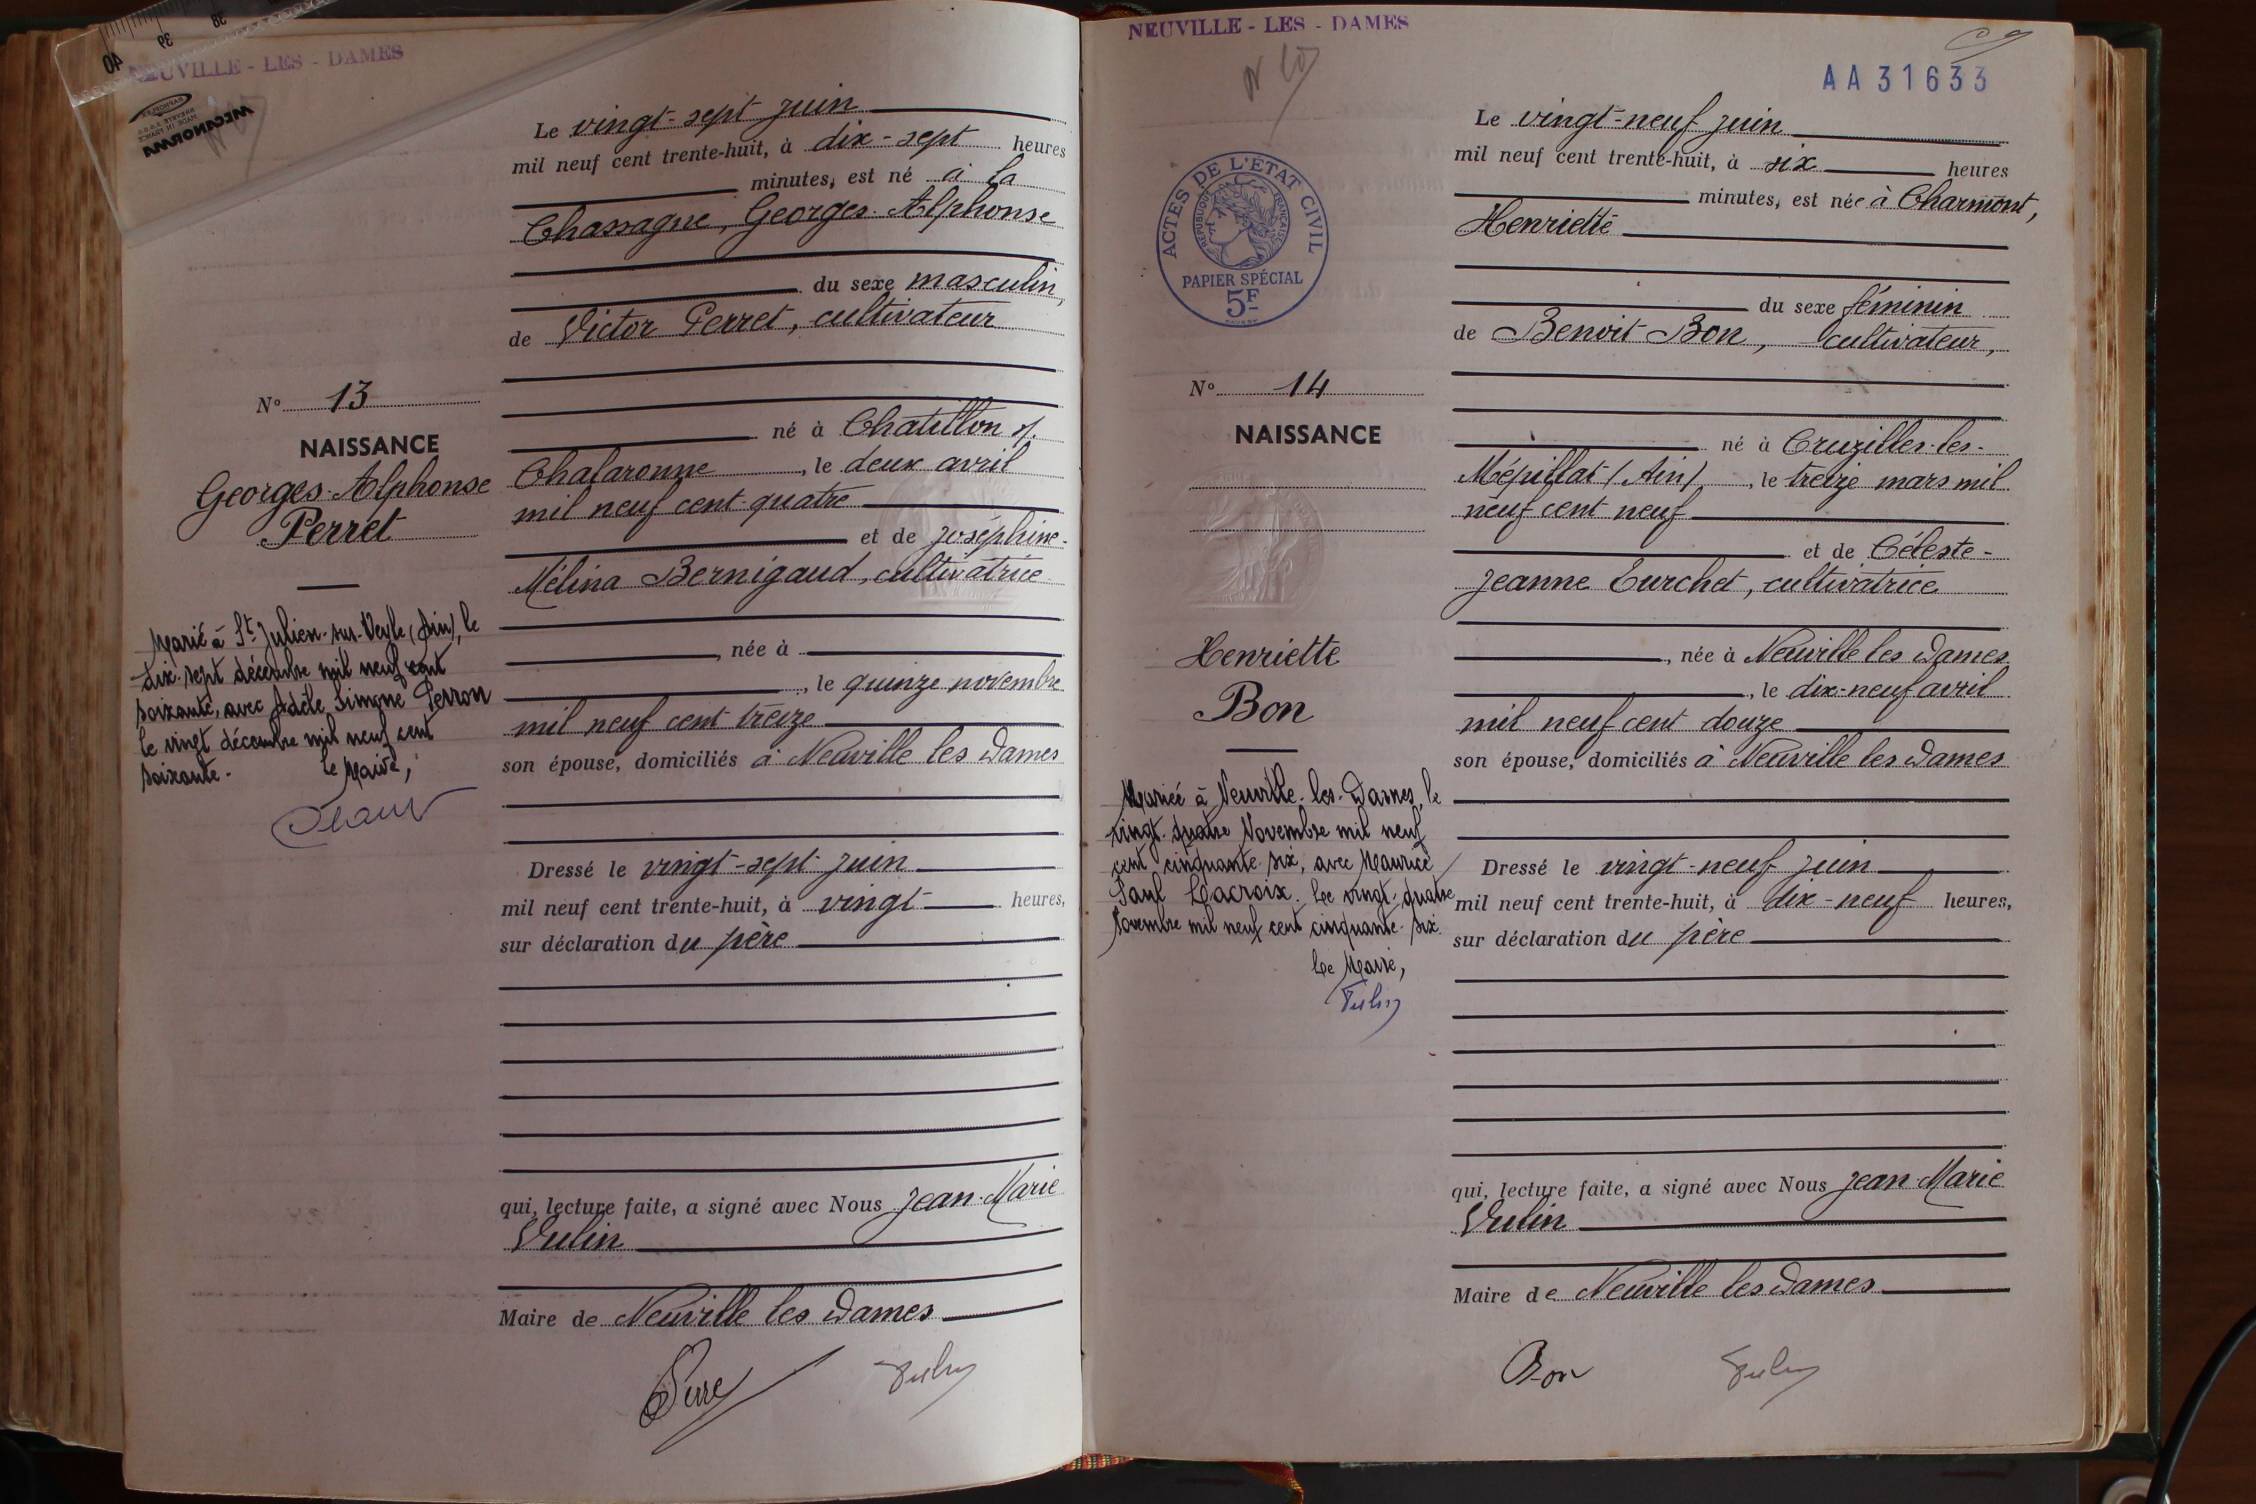 40 39 38
NEUVILLE - LES - DAMES
MECANORMA
Le vingt-sept juin
mil neuf cent trente-huit, à dix-sept heures
minutes, est né à la
Chassagne, Georges-Alphonse
du sexe masculin,
de Victor Perret, cultivateur
né à Chatillon s/.
Chalaronne, le deux avril
mil neuf cent quatre
et de Joséphine-
Mélina Bernigaud, cultivatrice
, née à
, le quinze novembre
mil neuf cent treize
son épouse, domiciliés à Neuville les Dames
Dressé le vingt-sept juin
mil neuf cent trente-huit, à vingt heures,
sur déclaration du père
qui, lecture faite, a signé avec Nous Jean-Marie
Vulin
Maire de Neuville les Dames
N° 13
NAISSANCE
Georges-Alphonse
Perret
Marié à St Julien-sur-Veyle (Ain), le
dix-sept décembre mil neuf cent
soixante, avec Adèle Simone Perron
le vingt décembre mil neuf cent
soixante.
le Maire,
NEUVILLE - LES - DAMES
AA31633
ACTES DE L'ÉTAT CIVIL
RÉPUBLIQUE FRANÇAISE
PAPIER SPÉCIAL
5F
N° 14
NAISSANCE
Henriette
Bon
Mariée à Neuville-les-Dames, le
vingt-quatre Novembre mil neuf
cent cinquante-six, avec Maurice
Paul Lacroix. Le vingt-quatre
Novembre mil neuf cent cinquante-six
Le Maire,
Vulin
Le vingt-neuf juin
mil neuf cent trente-huit, à six heures
minutes, est née à Charmont,
Henriette
du sexe féminin
de Benoit Bon, cultivateur,
né à Cruzilles-les-
Mépillat (Ain), le treize mars mil
neuf cent neuf
et de Céleste-
Jeanne Turchet, cultivatrice
, née à Neuville les Dames
, le dix-neuf avril
mil neuf cent douze
son épouse, domiciliés à Neuville les Dames
Dressé le vingt-neuf juin
mil neuf cent trente-huit, à dix-neuf heures,
sur déclaration du père
qui, lecture faite, a signé avec Nous Jean-Marie
Vulin
Maire de Neuville les Dames
Bon Vulin